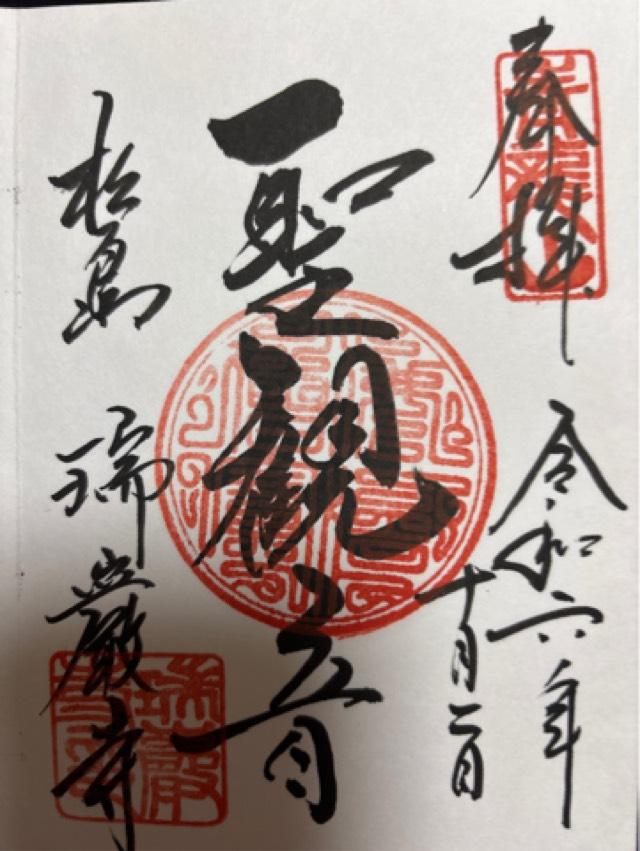 奉拝
令和六年
十月二日
聖観音
松島 瑞巌寺